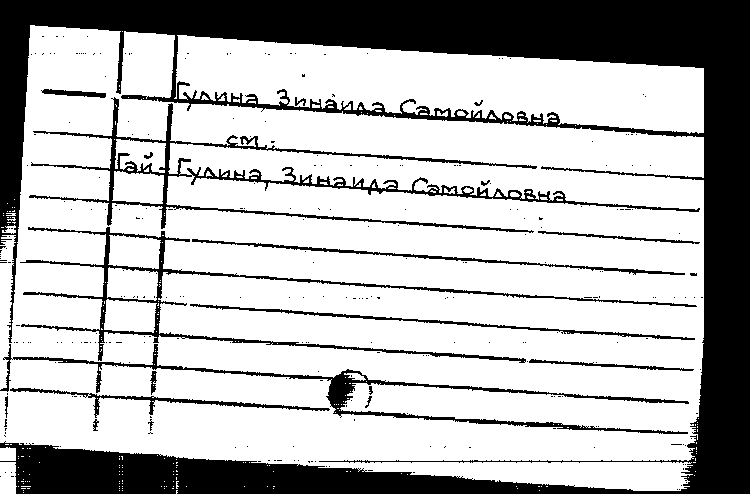 Гулина, Зинаида Самойловна
см.:
Гай-Гулина, Зинаида Самойловна